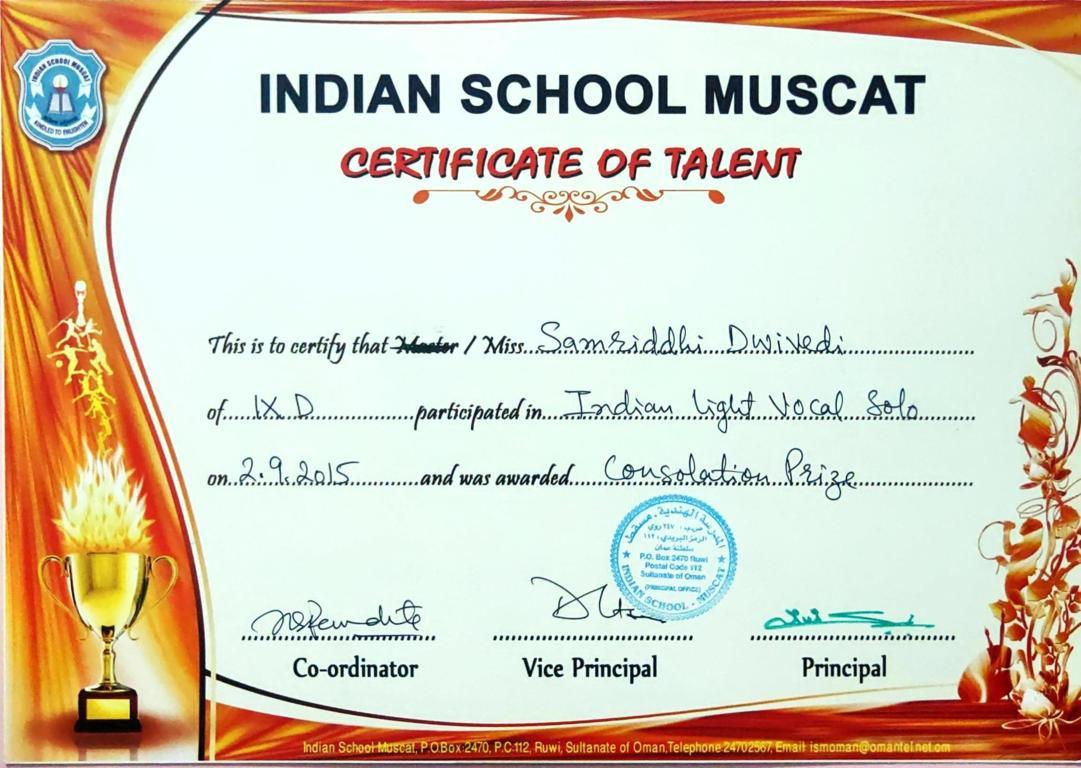 INDIAN SCHOOL MUSCAT
KINDLED TO ENLIGHTEN
INDIAN SCHOOL MUSCAT
CERTIFICATE OF TALENT
This is to certify that Master / Miss Samriddhi Dwivedi
of IX D participated in Indian light Vocal Solo
on 2.9.2015 and was awarded Consolation Prize
المدرسة الهندية . مسقط
ص.ب: ٢٤٧٠ روي
الرمز البريدي: ١١٢
سلطنة عمان
P.O. Box 2470 Ruwi
Postal Code 112
Sultanate of Oman
(PRINCIPAL OFFICE)
INDIAN SCHOOL - MUSCAT
Co-ordinator Vice Principal Principal
Indian School Muscat, P.O.Box:2470, P.C.112, Ruwi, Sultanate of Oman, Telephone 24702567, Email ismoman@omantel.net.om